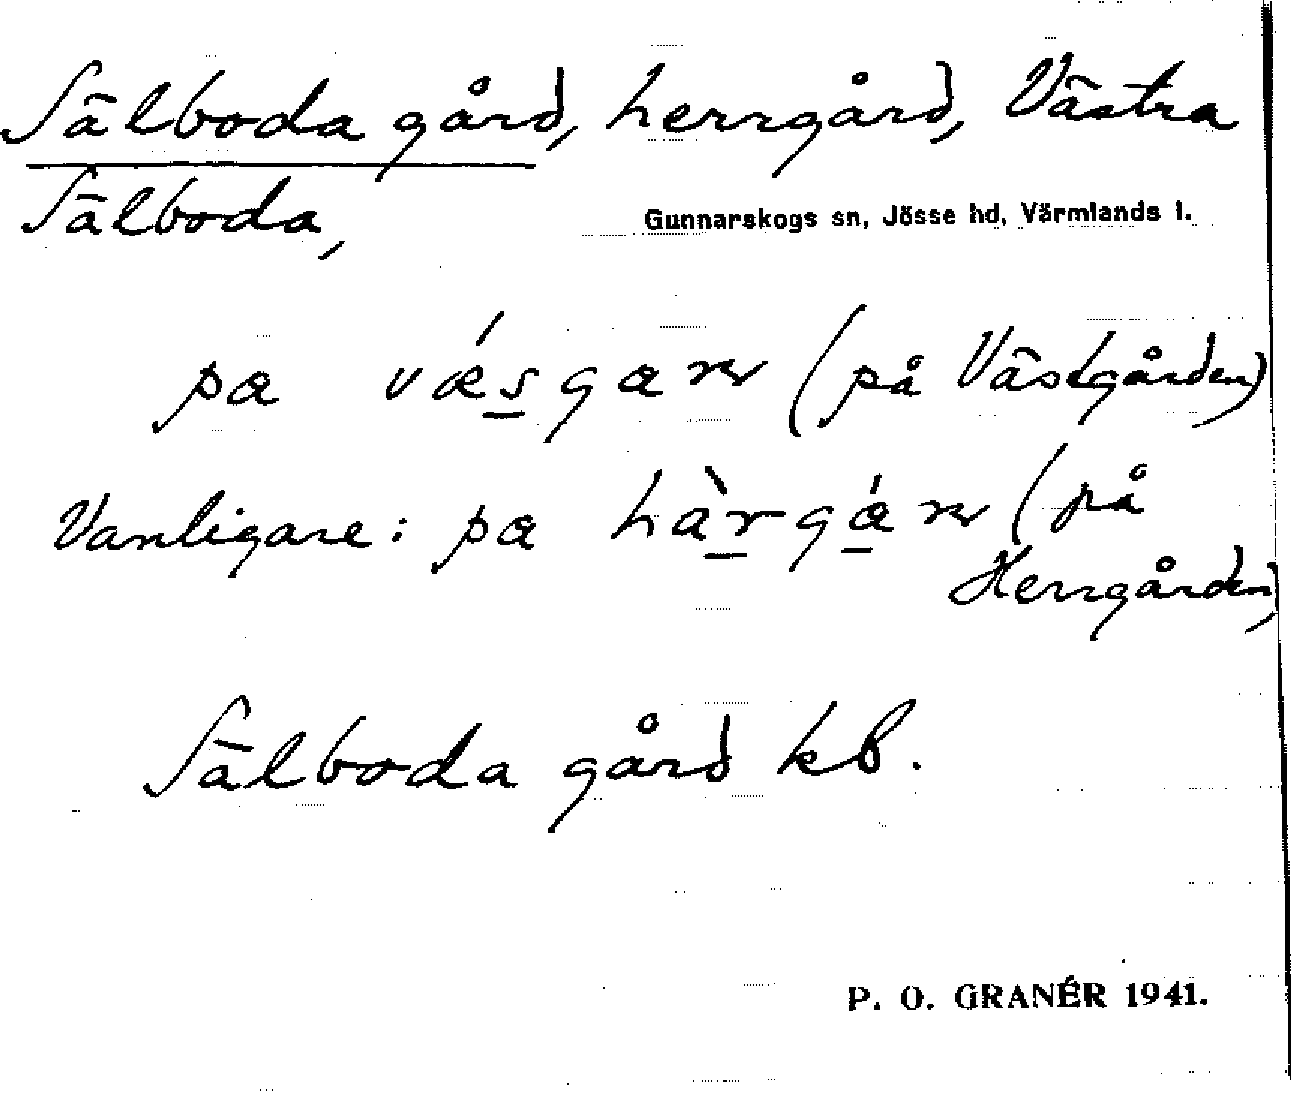 Sälboda gård, herrgård, Västra
Sälboda,
Gunnarskogs sn, Jösse hd, Värmlands l.
pæ vǽs̲gær (på Västgården)
Vanligare: pæ hàr̲gǽ̲r (på
Herrgården)
Sälboda gård kb.
P. O. GRANÉR 1941.